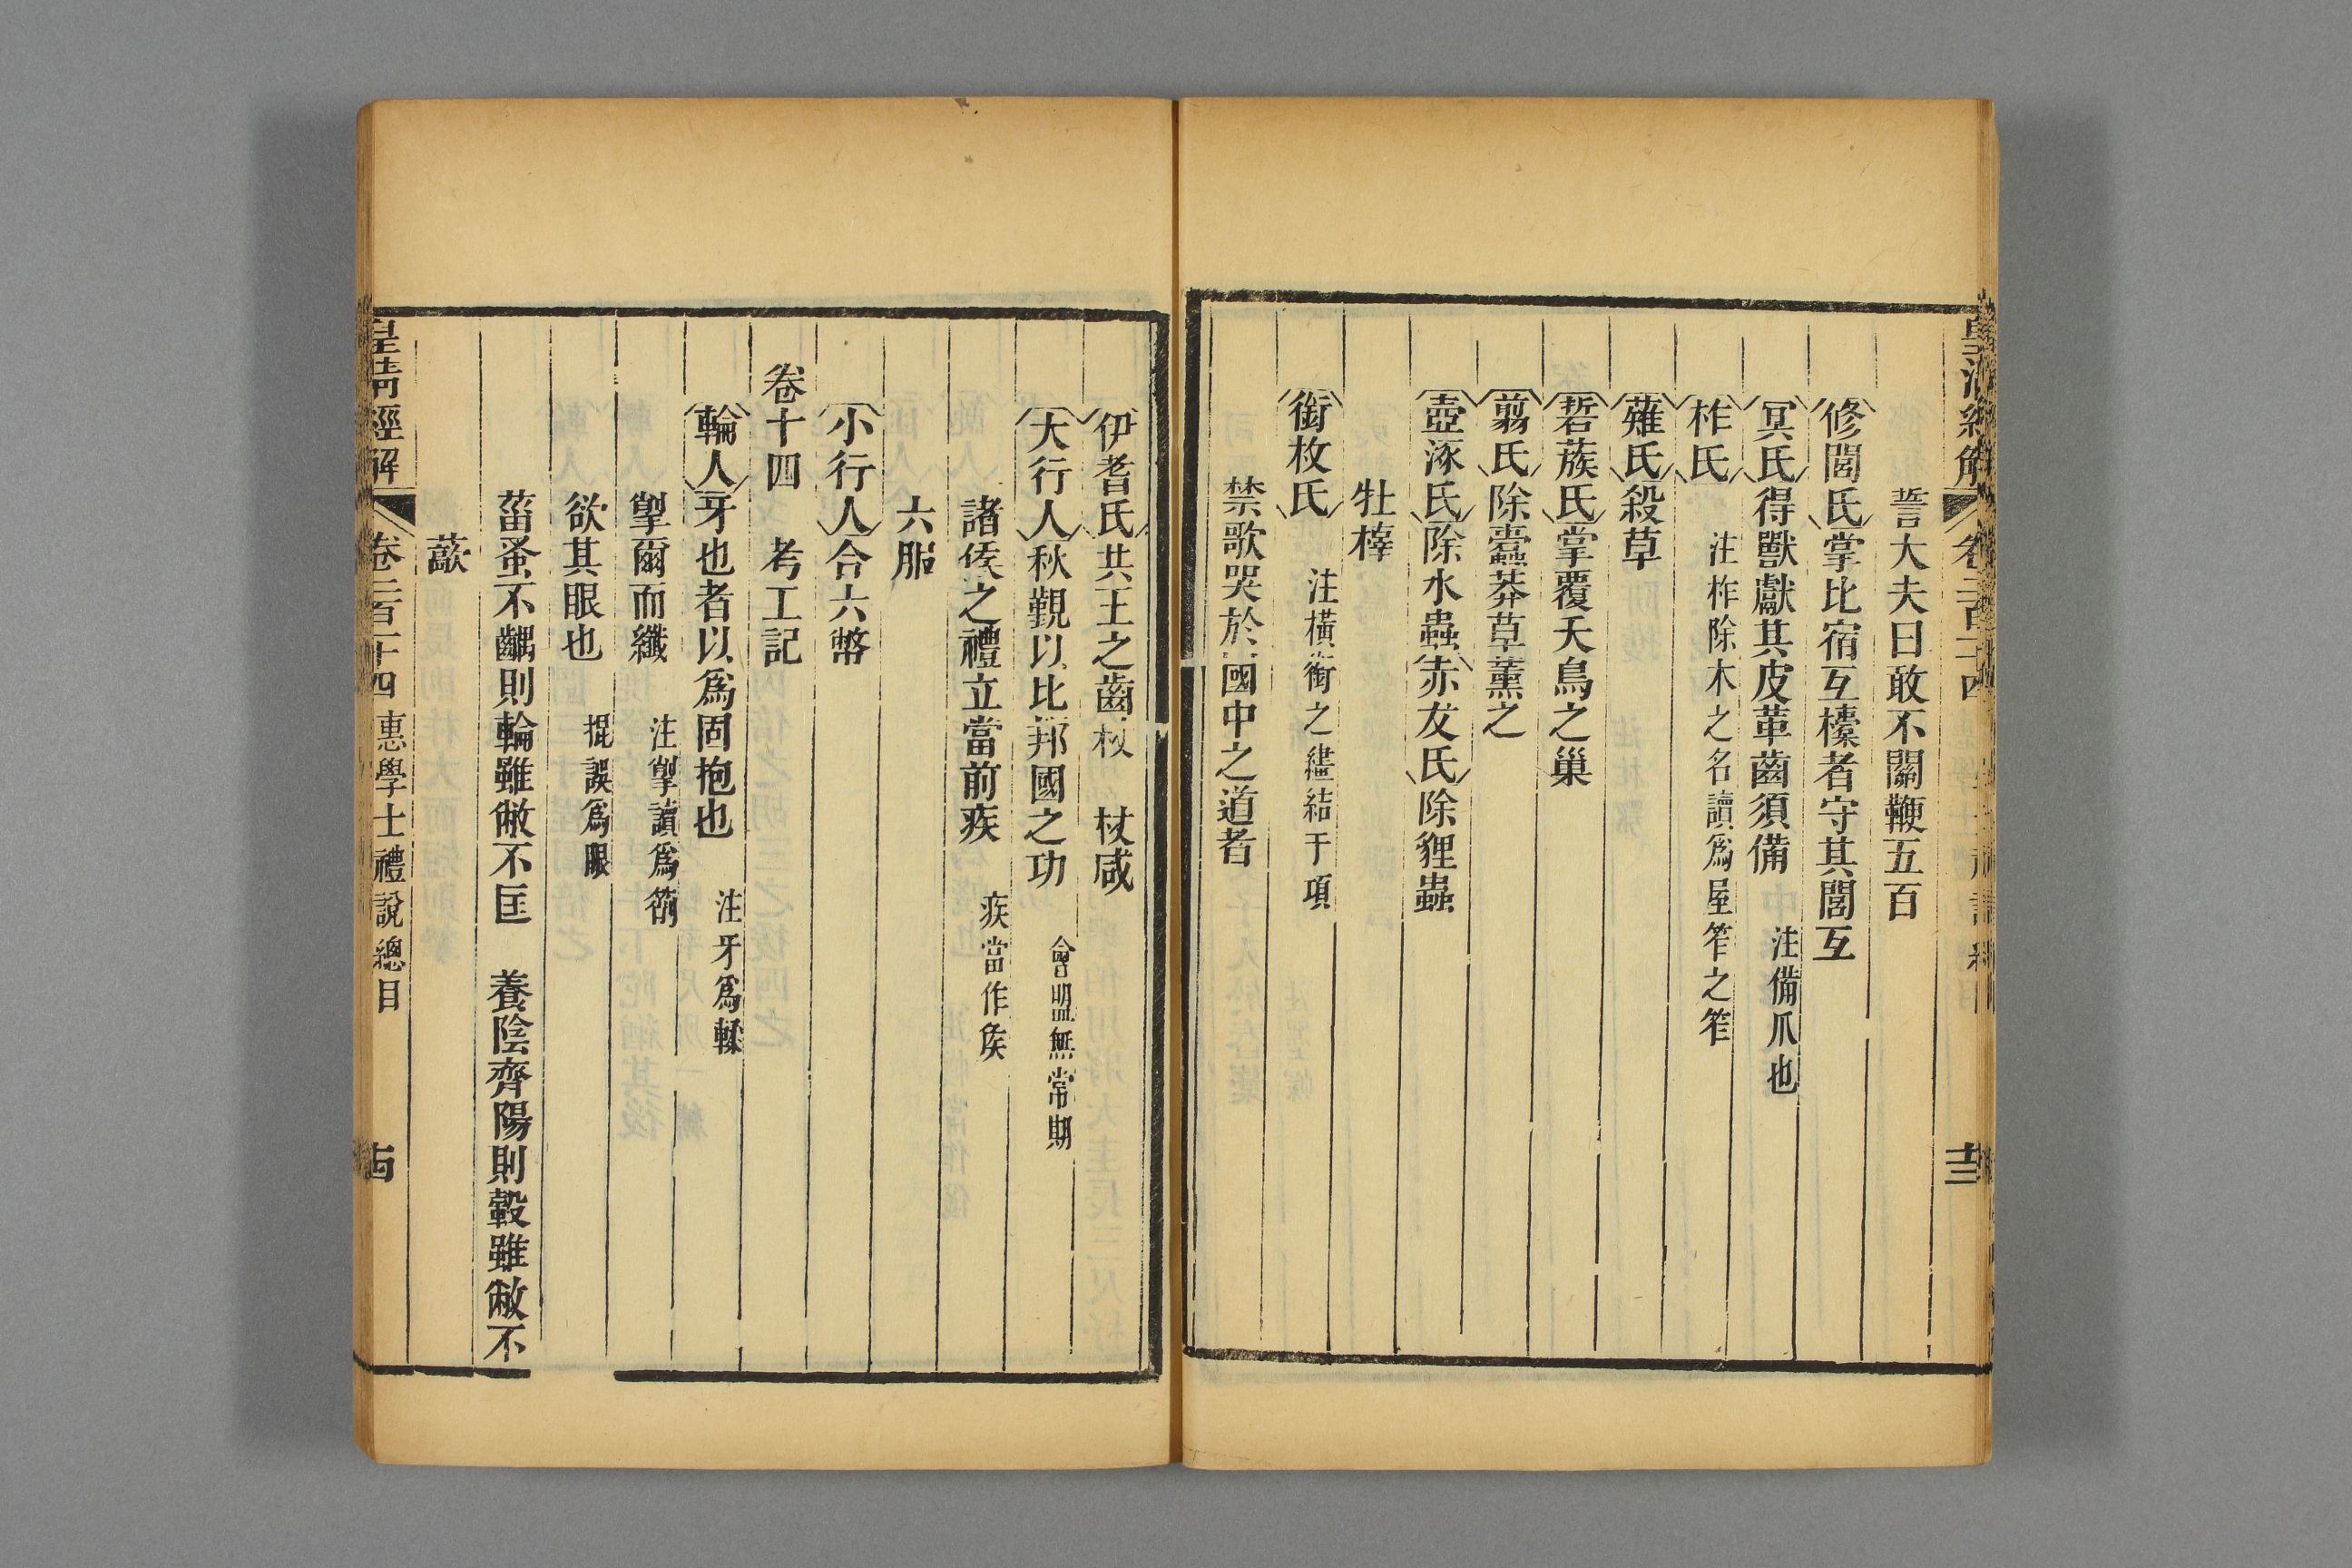 誓大夫曰敢不關鞭五百
修閭氏掌比宿互㯓者守其閭互
冥氏得獸獻其皮革齒須備 注備爪也
柞氏 注柞除木之名讀爲屋笮之笮
薙氏殺草
硩蔟氏掌覆夭鳥之巢
翦氏除蠹蟲莽草薰之
壺涿氏除水蟲赤犮氏除貍蟲
牡橭
銜枚氏 注橫銜之繣結于項
禁歌哭於國中之道者
伊耆氏共王之齒杖 杖咸
大行人秋覲以比邦國之功 會盟無常期
諸侯之禮立當前疾 疾當作矦
六服
小行人合六幣
卷十四 考工記
輪人牙也者以爲固抱也 注牙爲輮
掣爾而纖 注掣讀爲箾
欲其眼也 掍誤爲眼
菑蚤不齵則輪雖敝不匡 養陰齊陽則轂雖敝不
藃
皇清經解 卷二百十四 惠學士禮說總目 十四